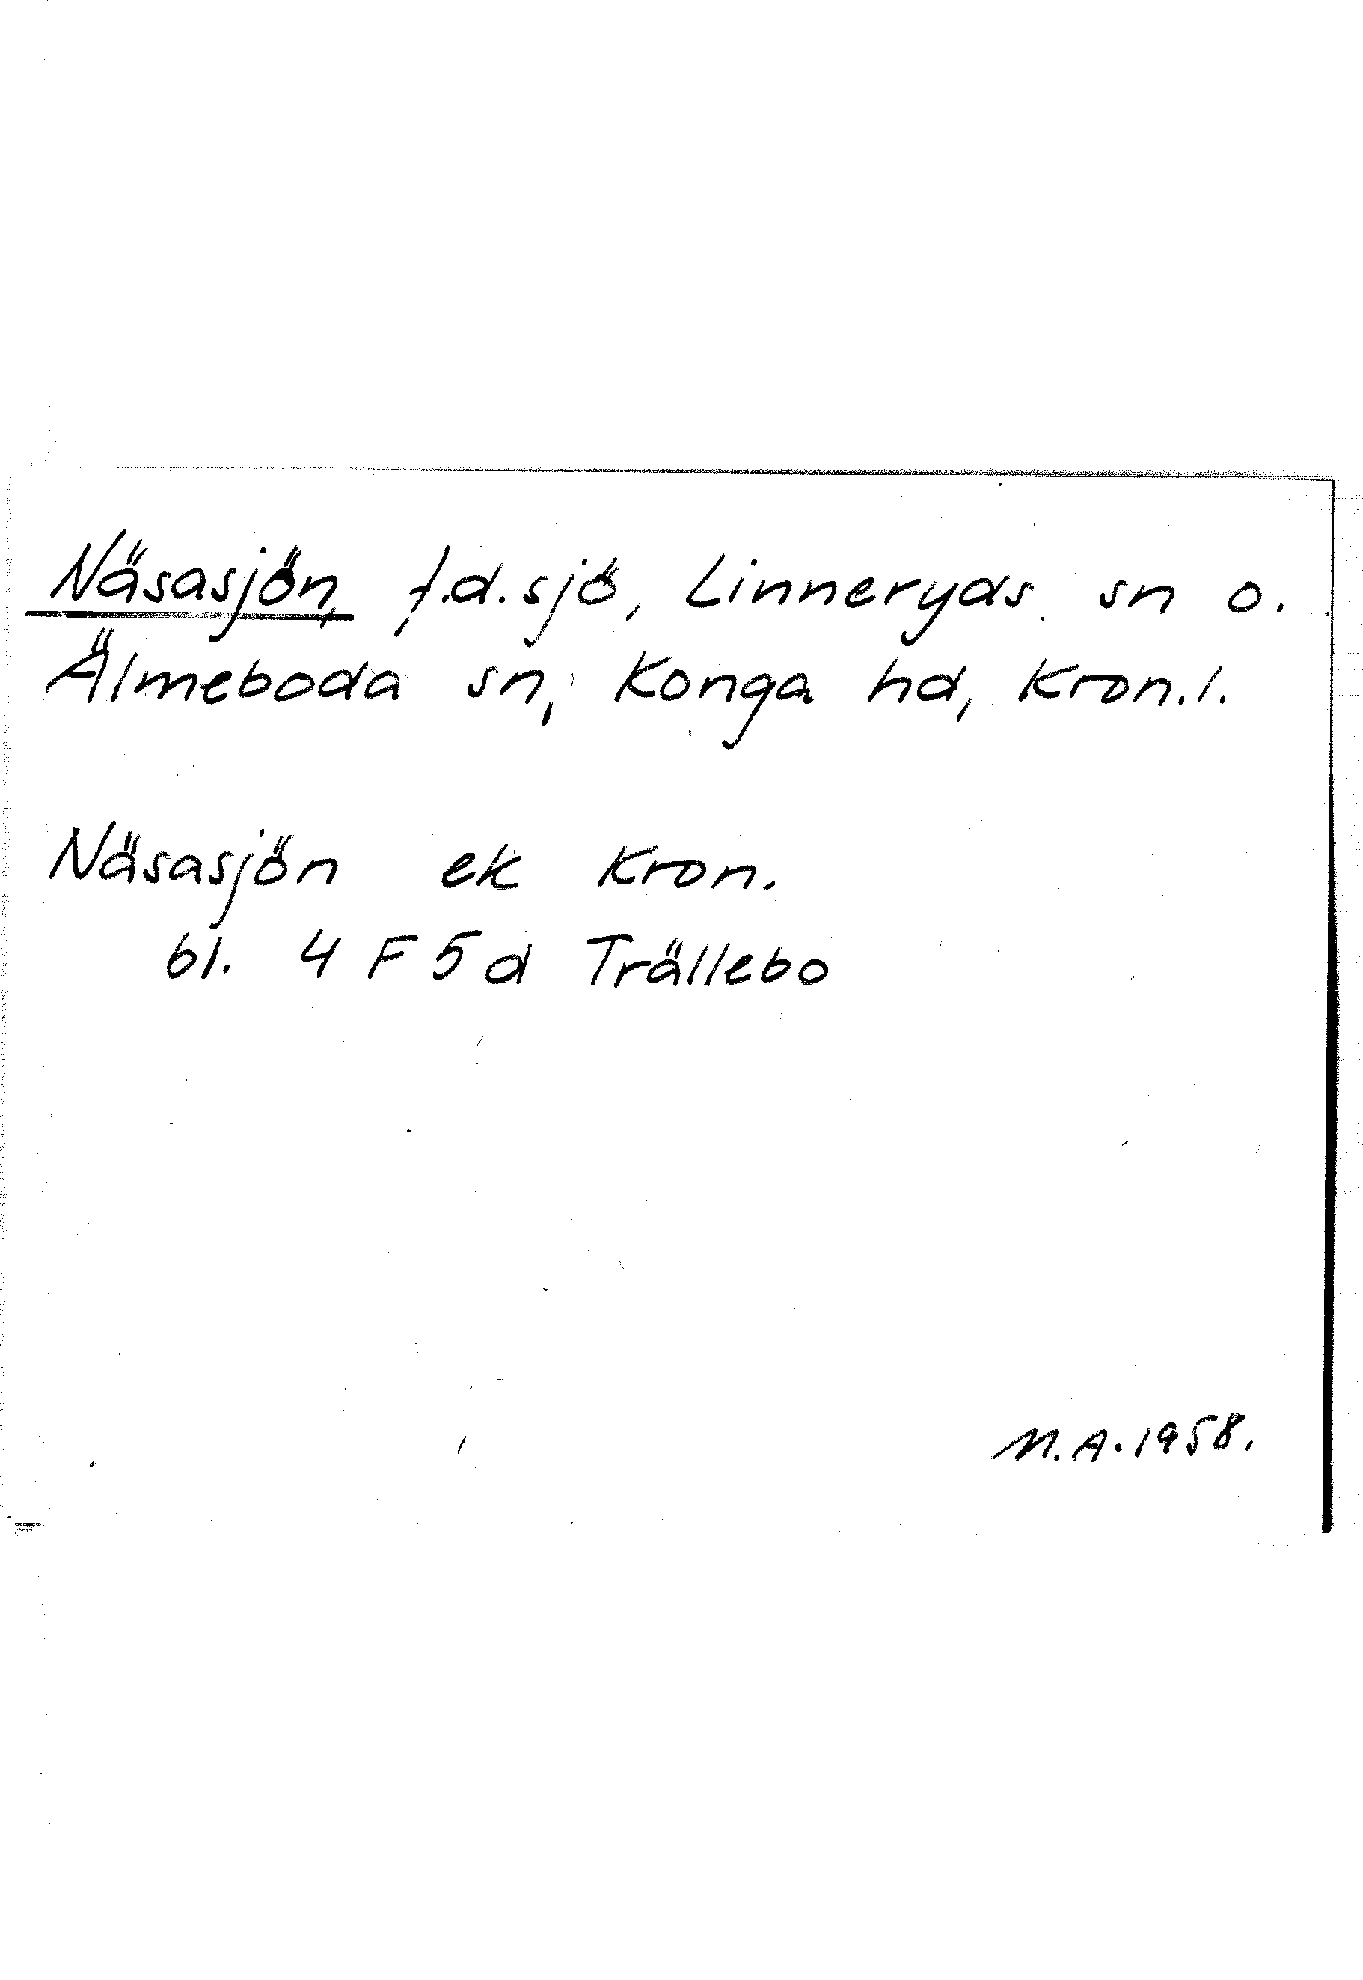 Näsasjön, f.d. sjö, Linneryds sn o.
Älmeboda sn, Konga hd, Kron.l.
Näsasjön ek Kron.
bl. 4 F 5 d Trällebo
M.A. 1958.